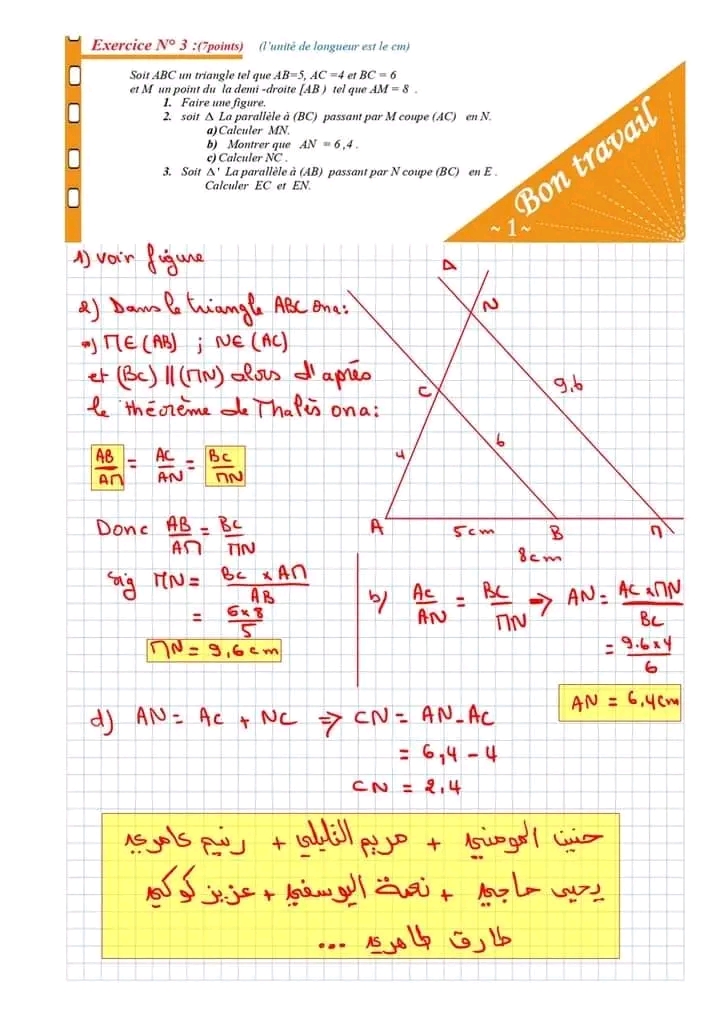 Exercice N° 3 :(7points) (l'unité de longueur est le cm)
Soit ABC un triangle tel que AB=5, AC =4 et BC = 6
et M un point du la demi -droite [AB ) tel que AM = 8 .
1. Faire une figure.
2. soit Δ La parallèle à (BC) passant par M coupe (AC) en N.
a) Calculer MN.
b) Montrer que AN = 6,4 .
c) Calculer NC .
3. Soit Δ' La parallèle à (AB) passant par N coupe (BC) en E .
Calculer EC et EN.
Bon travail
~ 1~
1) voir figure
2) Dans le triangle ABC ona:
a) M∈(AB) ; N∈(AC)
et (BC) || (MN) alors d'après
le théorème de Thalès ona:
AB/AM = AC/AN = BC/MN
Donc AB/AM = BC/MN
sig MN = BC x AM/AB
= 6x8/5
MN = 9,6 cm
Δ
N
C
9,6
6
4
A
5cm
B
M
8cm
b) AC/AN = BC/MN → AN = AC x MN/BC
= 9.6x4/6
AN = 6,4cm
d) AN = AC + NC ⇒ CN = AN - AC
= 6,4 - 4
CN = 2,4
حنين المومني + مريم التليلي + رنيم عامري
يحيى حاجي + نعمة اليوسفي + عزيز كوكي
طارق طاهري ...